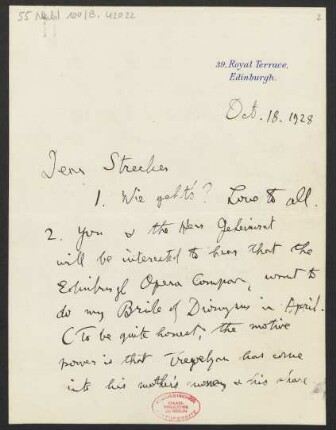 55 Nachl 100/B, 42022
2
39, Royal Terrace,
Edinburgh.
Oct. 18. 1928
Dear Strecker
1. Wie geht's? Love to all.
2. You & the Herr Geheimrat
will be interested to hear that the
Edinburgh Opera Company want to
do my Bride of Dionysus in April.
(To be quite honest, the motive
power is that Trevelyan has come
into his mother's money & his share